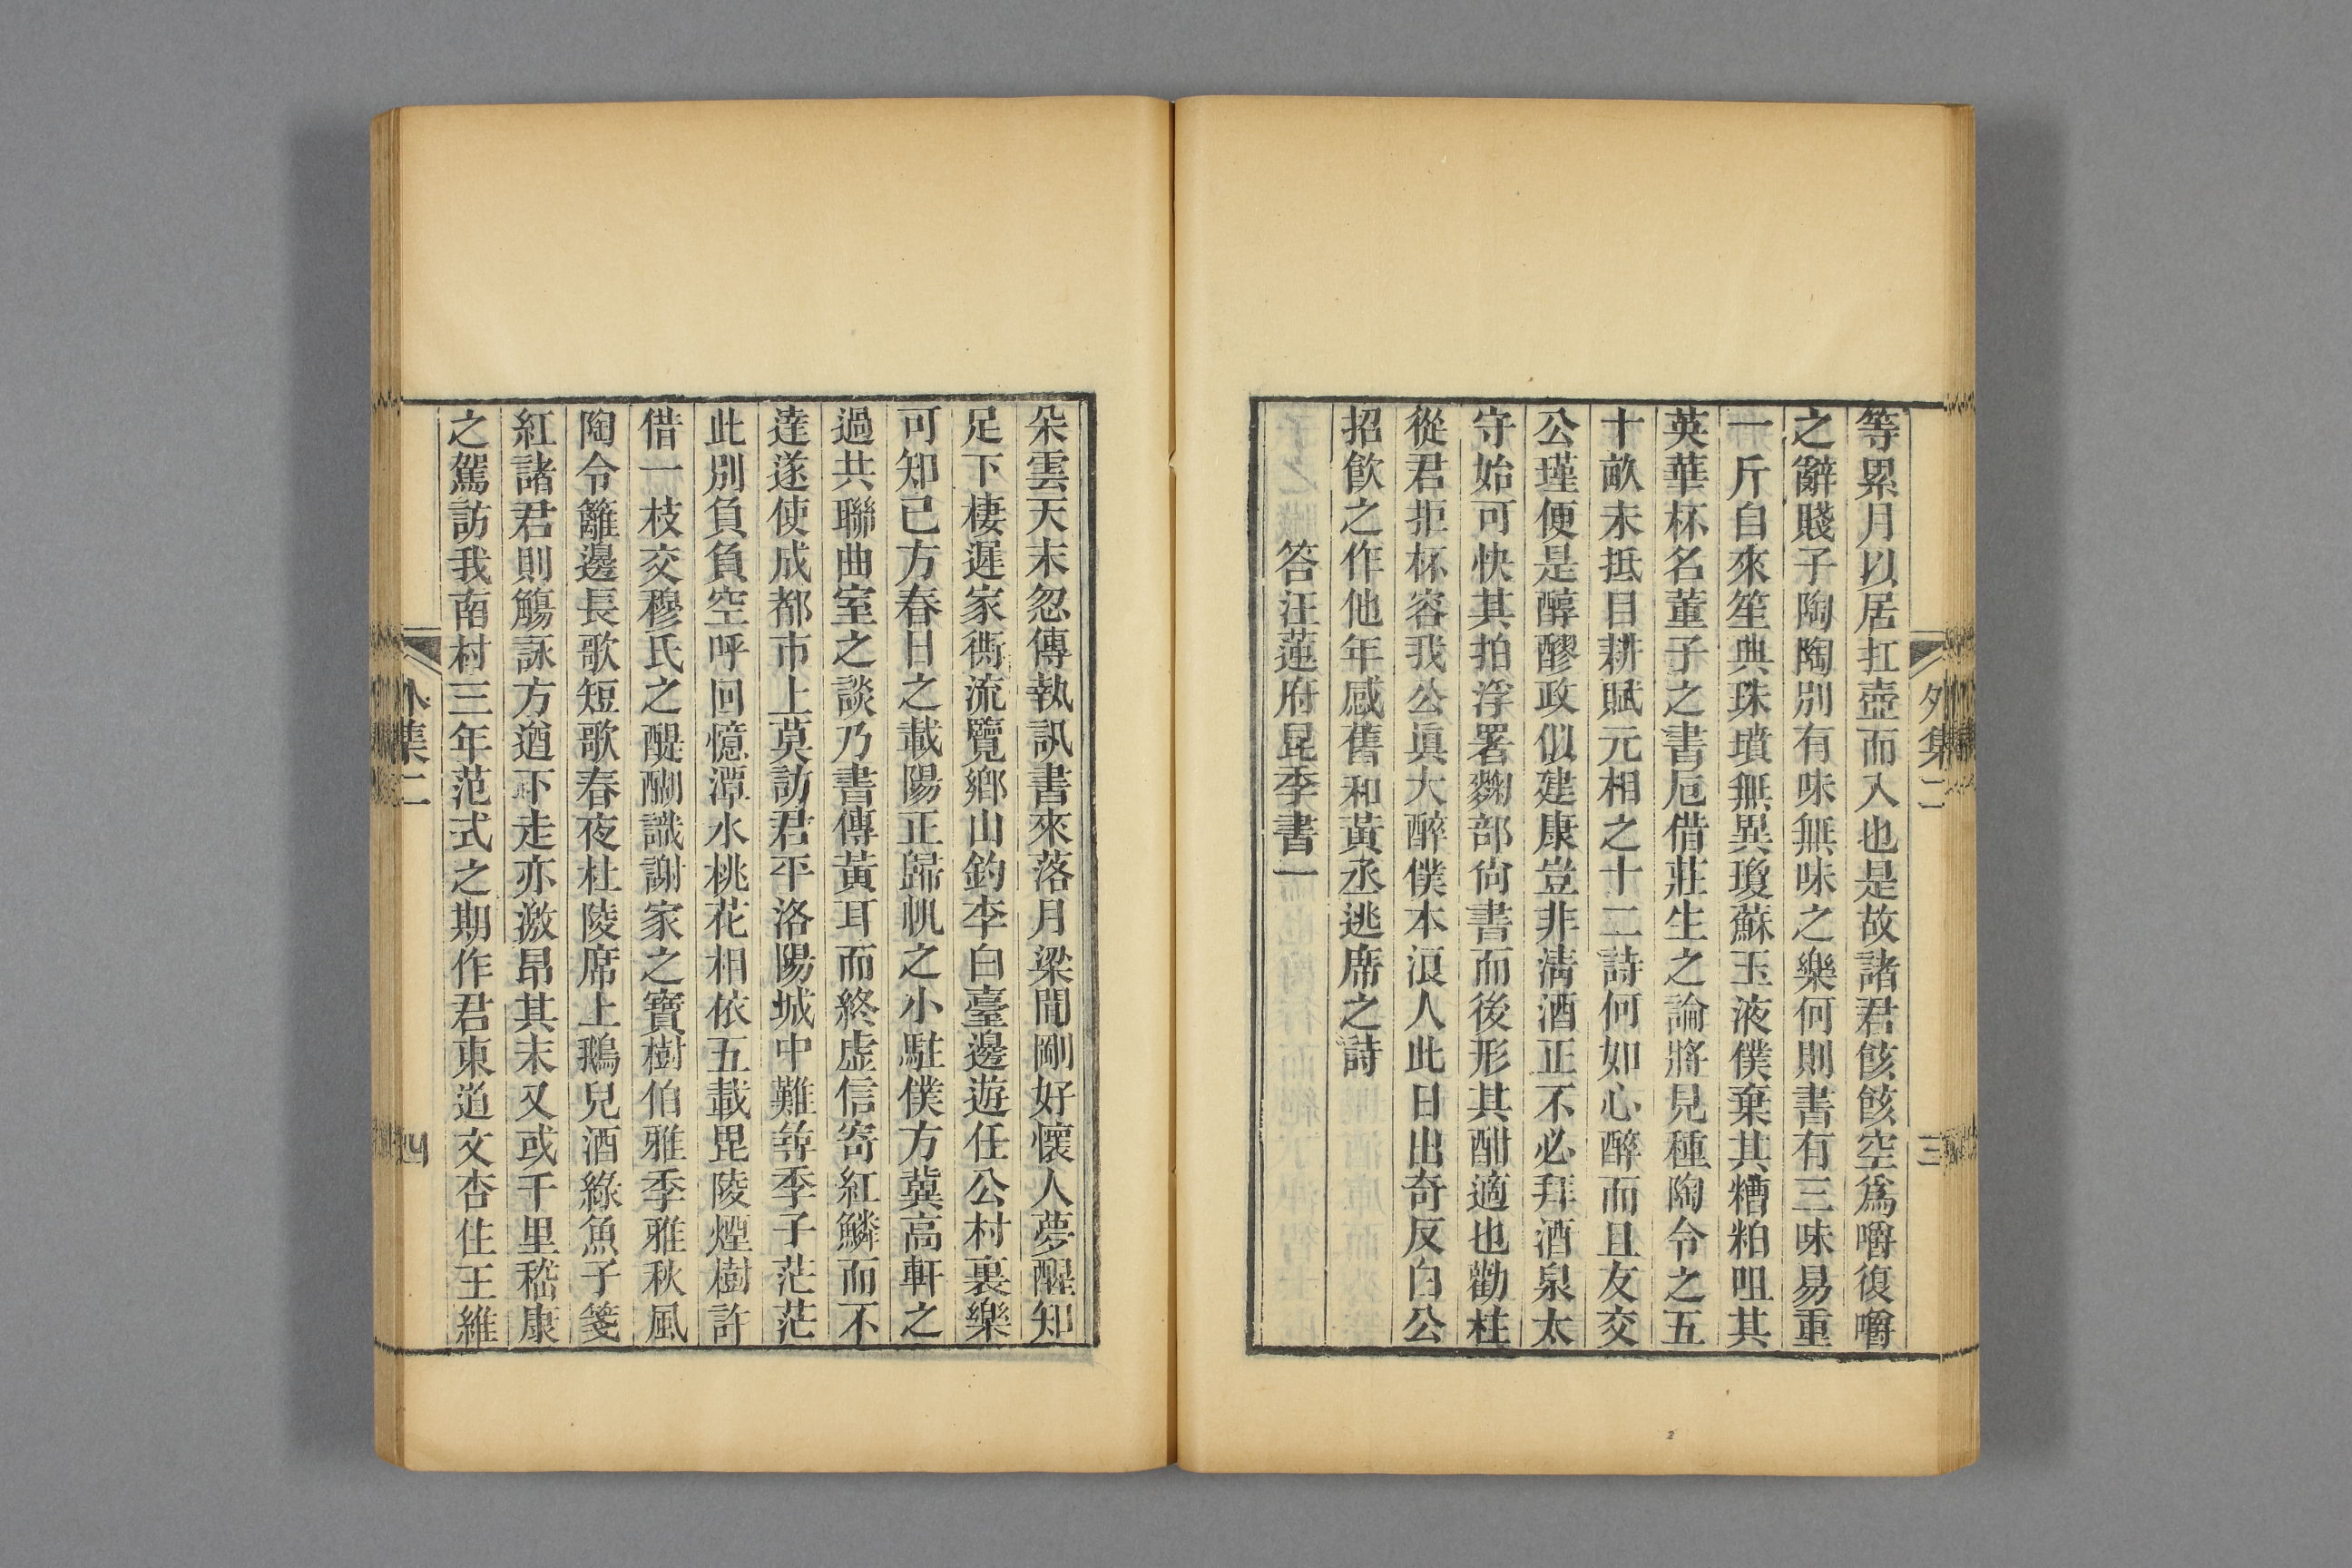 外集二
三
等累月以居扛壺而入也是故諸君餩餩空爲嚼復嚼
之辭賤子陶陶別有味無味之樂何則書有三味易重
一斤自來笙典珠墳無異瓊蘇玉液僕棄其糟粕咀其
英華杯名董子之書卮借莊生之論將見種陶令之五
十畝未抵目耕賦元相之十二詩何如心醉而且友交
公瑾便是醇醪政似建康豈非清酒正不必拜酒泉太
守始可快其拍浮署麴部尙書而後形其酣適也勸桂
從君拒杯容我公眞大醉僕本浪人此日出奇反白公
招飮之作他年感舊和黃丞逃席之詩
答汪蓮府昆季書一
朵雲天末忽傳執訊書來落月梁間剛好懷人夢醒知
足下棲遲家衖流覽鄉山釣李白臺邊遊任公村裏樂
可知已方春日之載陽正歸帆之小駐僕方冀高軒之
過共聯曲室之談乃書傳黃耳而終虛信寄紅鱗而不
達遂使成都市上莫訪君平洛陽城中難等季子茫茫
此別負負空呼回憶潭水桃花相依五載毘陵煙樹許
借一枝交穆氏之醍醐識謝家之寶樹伯雅季雅秋風
陶令籬邊長歌短歌春夜杜陵席上鵝兒酒綠魚子箋
紅諸君則觴詠方遒下走亦激昂其末又或千里嵇康
之駕訪我南村三年范式之期作君東道文杏住王維
外集二
四